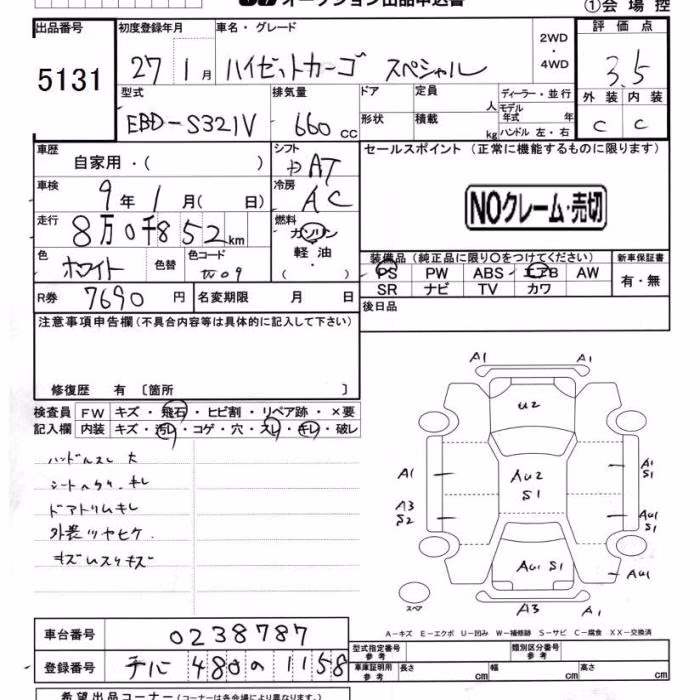 オークション出品申込書
①会場控
出品番号 初度登録年月 車名・グレード 評価点
5131 27 1月 ハイゼットカーゴ スペシャル 2WD・4WD 3.5
型式 排気量 ドア 定員 人 ディーラー・並行 外装 内装
EBD-S321V 660cc 形状 積載 kg モデル年式 年 C C
ハンドル 左・右
車歴 シフト セールスポイント (正常に機能するものに限ります)
自家用・( ) AT
車検 冷房
9年1月( 日) AC NOクレーム・売切
走行 燃料
8万0千852km ガソリン
軽油・( )
色 色替 色コード 装備品(純正品に限り○をつけてください) 新車保証書
ホワイト W09 PS PW ABS エアB AW 有・無
R券 7690円 名変期限 月 日 SR ナビ TV カワ
後日品
注意事項申告欄(不具合内容等は具体的に記入して下さい)
修復歴 有 〔箇所 〕
検査員 FW キズ・飛石・ヒビ割・リペア跡・×要
記入欄 内装 キズ・汚レ・コゲ・穴・スレ・キレ・破レ
ハンドルスレ大
ドアトリムキレ
外装ツヤヒケ
キズレスリキズ
A1 A1
U2
A1 AU2 S1 A1 S1
A3 S2 AU1 S1
AU1 S1 AU1
スペア A3 A1
A-キズ E-エクボ U-凹み W-補修跡 S-サビ C-腐食 XX-交換済
車台番号 0238787
型式指定番号 参考 類別区分番号 参考
登録番号 480 の 1158
車庫証明用 参考 長さ cm 幅 cm 高さ cm
希望出品コーナー(コーナーは各会場により異なります。)